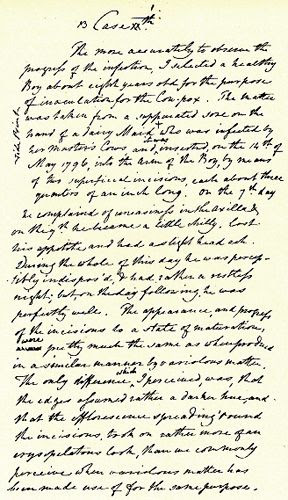 13 Case XX th.
The more accurately to observe the
progress of the infection, I selected a healthy
Boy about eight years old for the purpose
of inoculation for the Cow-pox. The matter
was taken from a suppurated sore on the
hand of a dairy Maid, who was infected by
her Masters Cows and it was inserted, on the 14th of
May 1796, into the arm of the Boy, by means
of two superficial incisions, each about three
quarters of an inch long. On the 7th day
he complained of uneasiness in the axilla &
on the 9th he became a little chilly, lost
his appetite and had a slight head ach.
During the whole of this day he was percep-
tibly indispos'd, & had rather a restless
night; but, on the day following, he was
perfectly well. The appearance, and progress
of the incisions to a state of maturation,
were pretty much the same as when produced
in a similar manner by variolous matter.
The only difference which I perceived, was, that
the edges assumed rather a darker hue, and
that the efflorescence spreading round
the incisions, took on rather more of an
erysipelatous look, than we commonly
perceive when variolous matter has
been made use of for the same purpose.